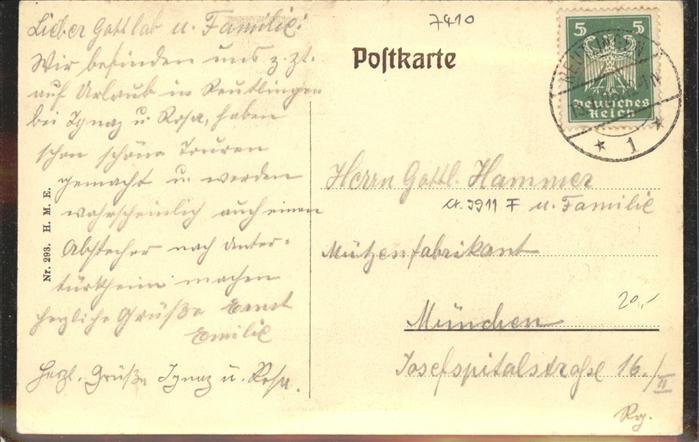 Lieber Gottlob u. Familie!
Wir befinden uns z. Zt.
auf Urlaub in Reutlingen
bei Ignaz u. Rosa, haben
schon schöne Touren
gemacht u. werden
wahrscheinlich auch einen
Abstecher nach Unter-
türkheim machen
herzliche Grüße Ernst
Emilie
Herzl. Grüße Ignaz u. Rosa.
Nr. 293. H. M. E.
7410
Postkarte
5 5
Deutsches
Reich
* 1 *
Herrn Gottl. Hammer
u. Familie
Mützenfabrikant
München
Josefspitalstraße 16./II
20,-
Rg.